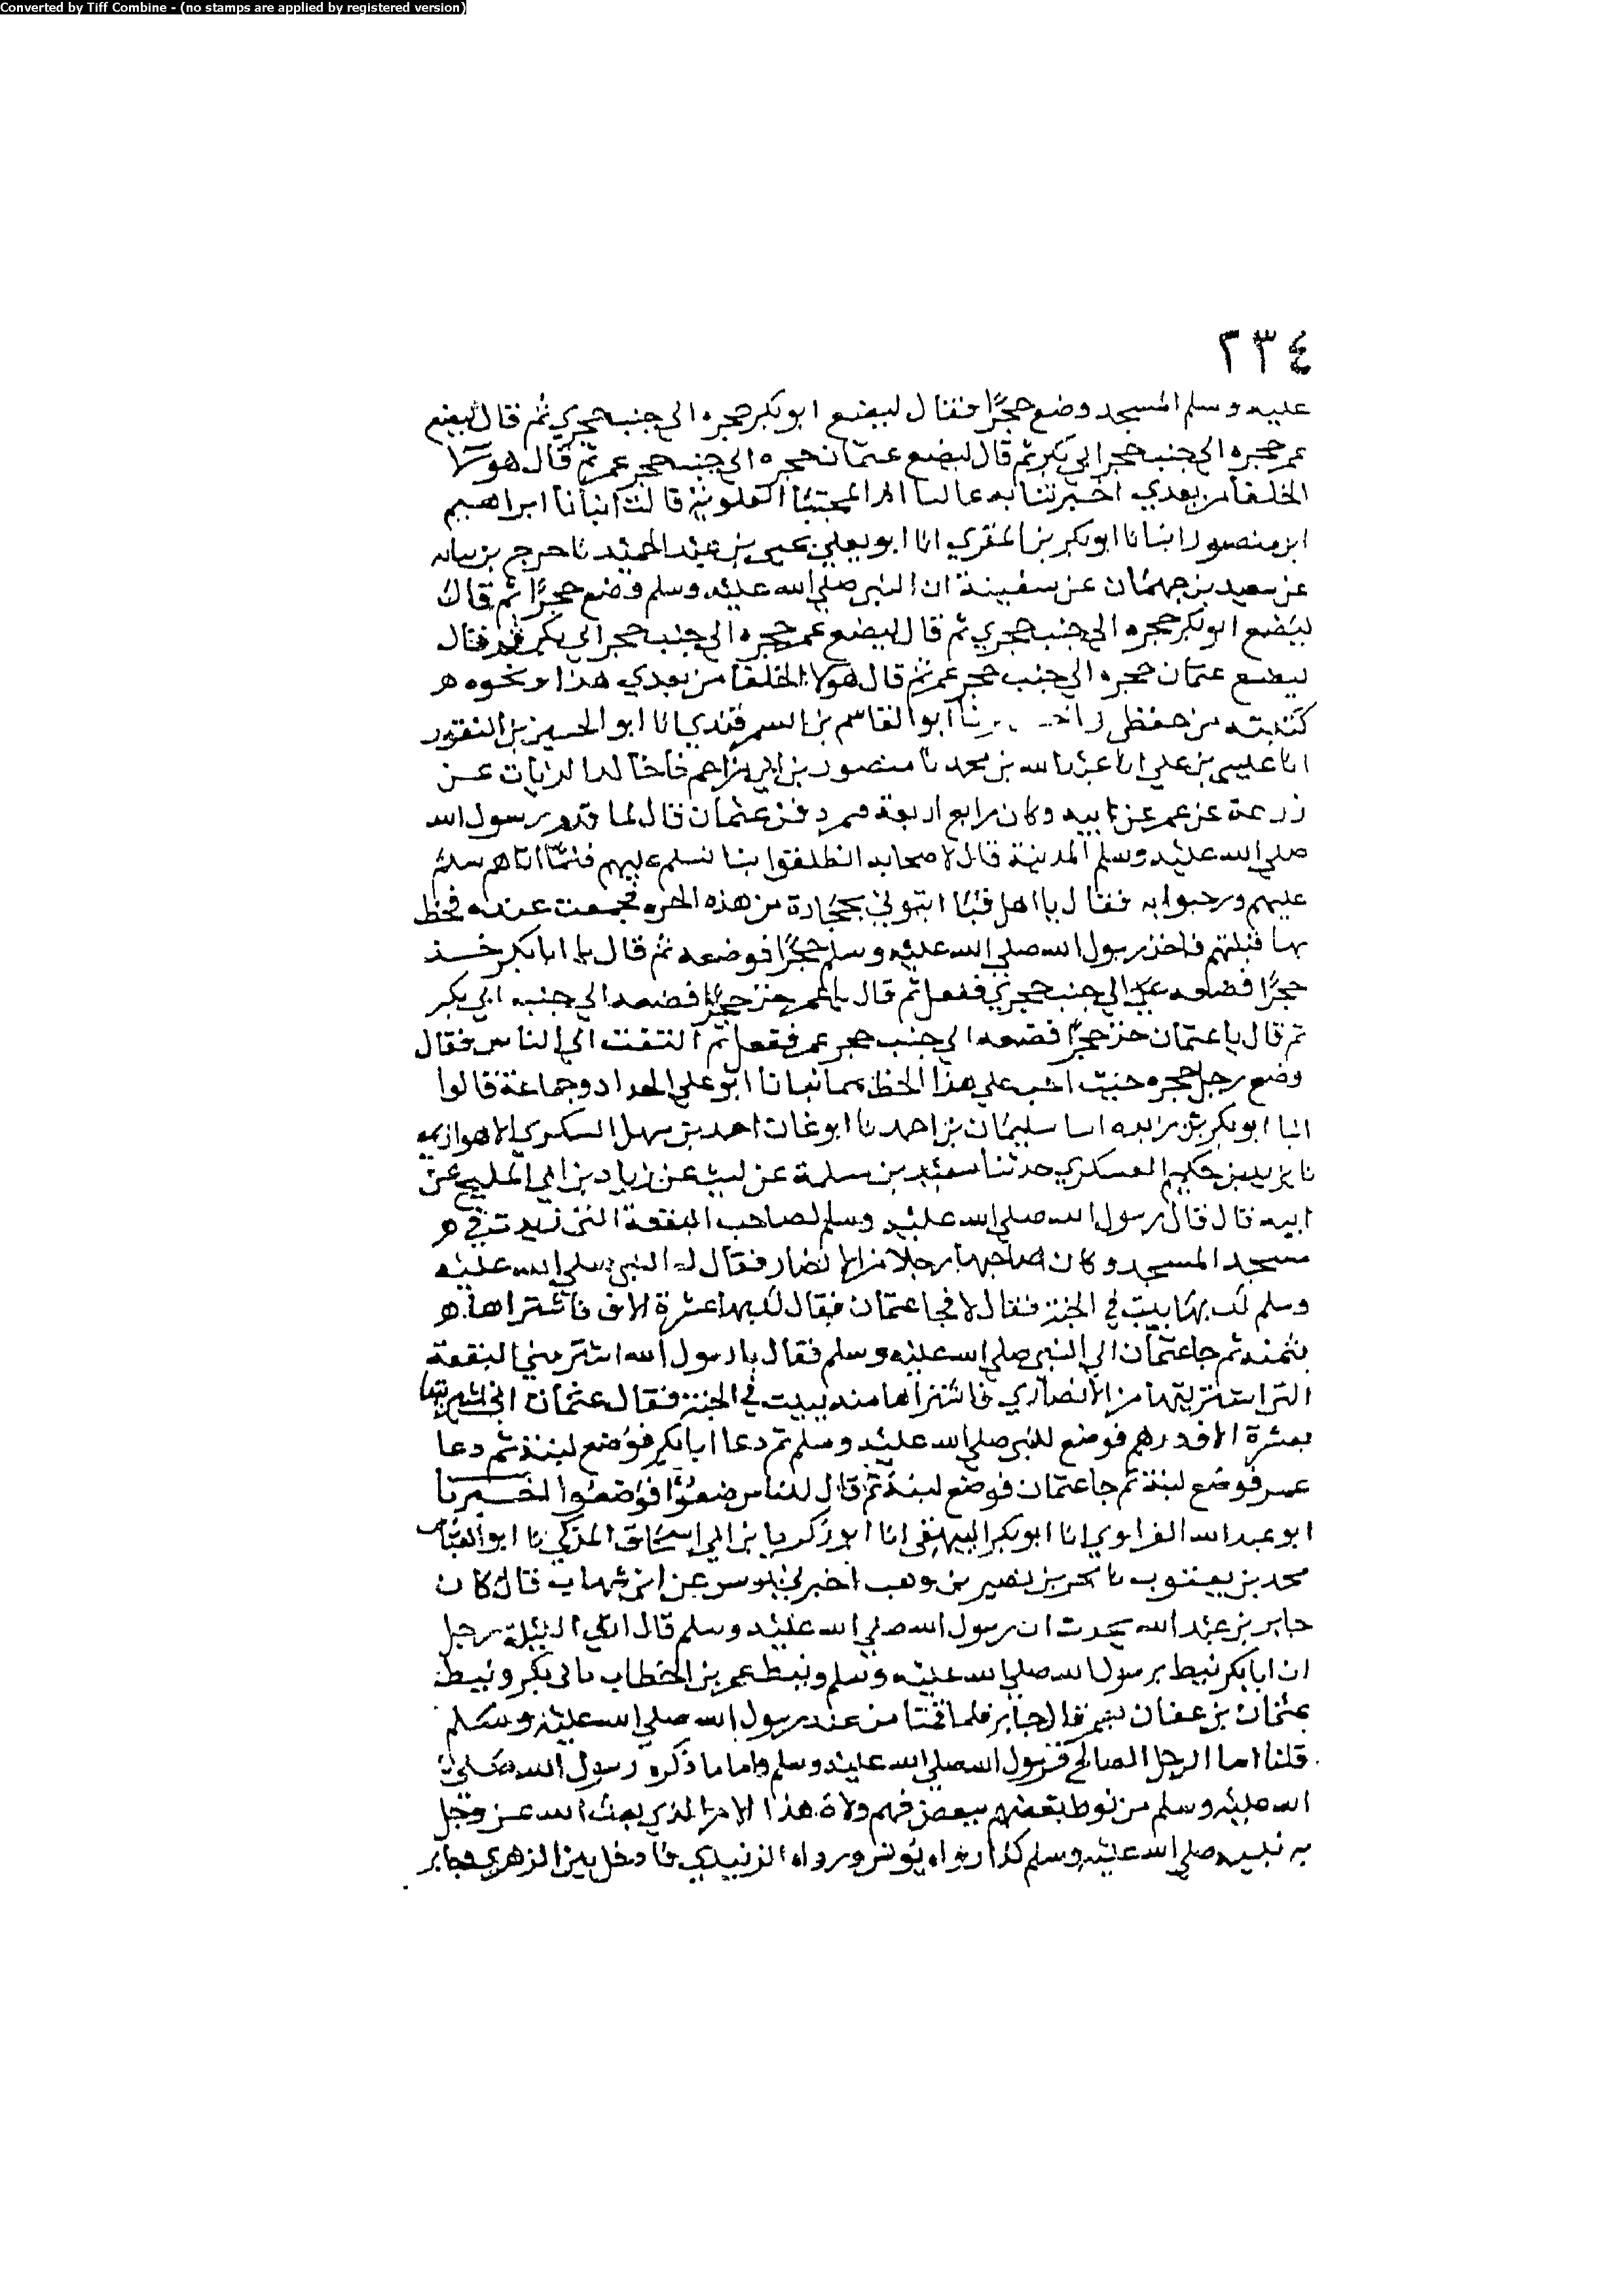 Converted by Tiff Combine - (no stamps are applied by registered version)
٢٣٤
عليه وسلم المسجد وضع حجرًا فقال ليضع ابو بكر حجره الى جنب حجري ثم قال ليضع
عمر حجره الي جنب حجر ابي بكر ثم قال ليضع عثمان حجره الى جنب حجر عمر ثم قال هولا
الخلفا من بعدي اخبرتنا به عاليا ام المجتبا العلوية قالت انبانا ابراهيم
ابن منصور انبانا ابو بكر بن المقري انا ابو يعلي يحيى بن عبد الحميد نا حشرج بن نباته
عن سعيد بن جهمان عن سفينة ان النبي صلي الله عليه وسلم وضع حجرًا ثم قال
ليضع ابو بكر حجره الى جنب حجري ثم قال ليضع عمر حجره الى جنب حجر ابي بكر ثم قال
ليضع عثمان حجره الي جنب حجر عمر ثم قال هولا الخلفا من بعدي هذا او نحوه ه
كتبته من حفظي ابو القاسم بن السمرقندي انا ابو الحسين بن النقور
انا عيسى بن علي انا عبد الله بن محمد نا منصور بن ابي مزاحم نا خالد الزيات عن
زرعة عن عمر عن ابيه وكان رابع اربعة ممن دفن عثمان قال لما قدم رسول الله
صلى الله عليه وسلم المدينة قال لاصحابه انطلقوا بنا نسلم عليهم فلما اتاهم سلم
عليهم ورحبوا به فقال يا اهل قبا ايتوني بحجارة من هذه الحره فجمعت عنده فخط
بها قبلتهم فاخذ رسول الله صلي الله عليه وسلم حجرًا فوضعه ثم قال يا ابا بكر خذ
حجرًا فضعه الى جنب حجري ففعل ثم قال يا عمر خذ حجرًا فضعه الي جنب ابي بكر
ثم قال يا عثمان خذ حجرًا فضعه الى جنب حجر عمر ففعل ثم التفت الى الناس فقال
وضع رجل حجره حيث احب علي هذا الخط انبانا ابو علي الحداد وجماعة قالوا
انبا ابو بكر بن ريده سليمان بن احمد نا احمد بن سهل السكري الاهوازي
نا يزيد بن حكيم العسكري حدثنا سعيد بن سلمة عن ليث عن زياد بن ابي المليح عن
ابيه قال قال رسول الله صلي الله عليه وسلم لصاحب البقعة التي زيدت في ه
مسجد المسجد وكان صاحبها رجلا من الانصار فقال له النبي صلي الله عليه
وسلم لك بها بيت في الجنة فقال لا فجا عثمان فقال لك بها عشرة الاف فاشتراها ه
ثم جا عثمان الي النبي صلي الله عليه وسلم فقال يا رسول الله اشتر مني البقعة
التي اشتريتها من الانصاري فاشتراها منه ببيت في الجنة فقال عثمان اني اشتريتها
بعشرة الاف درهم فوضع النبي صلي الله عليه وسلم ثم دعا ابا بكر فوضع لبنة ثم دعا
عمر فوضع لبنة ثم جا عثمان فوضع لبنة ثم قال للناس ضعوا فوضعوا اخبرنا
ابو عبد الله الفراوي انا ابو بكر البيهقي انا ابو زكريا بن ابي اسحاق المزكي نا ابو العباس
محمد بن يعقوب نا بحر بن نصر بن وهب اخبرني يونس عن ابن شهاب قال كان
جابر بن عبد الله يحدث ان رسول الله صلي الله عليه وسلم قال اري الليلة رجل
ان ابا بكر نيط برسول الله صلي الله عليه وسلم ونيط عمر بن الخطاب بابي بكر ونيط
عثمان بن عفان بعمر قال جابر فلما قمنا من عند رسول الله صلي الله عليه وسلم
قلنا اما الرجل الصالح فرسول الله صلي الله عليه وسلم واما ما ذكره رسول الله صلي
الله عليه وسلم من نوط بعضهم ببعض فهم ولاة هذا الامر الذي بعث الله عز وجل
به نبيه صلي الله عليه وسلم كذا رواه يونس ورواه الزبيدي فادخل بين الزهري وجابر